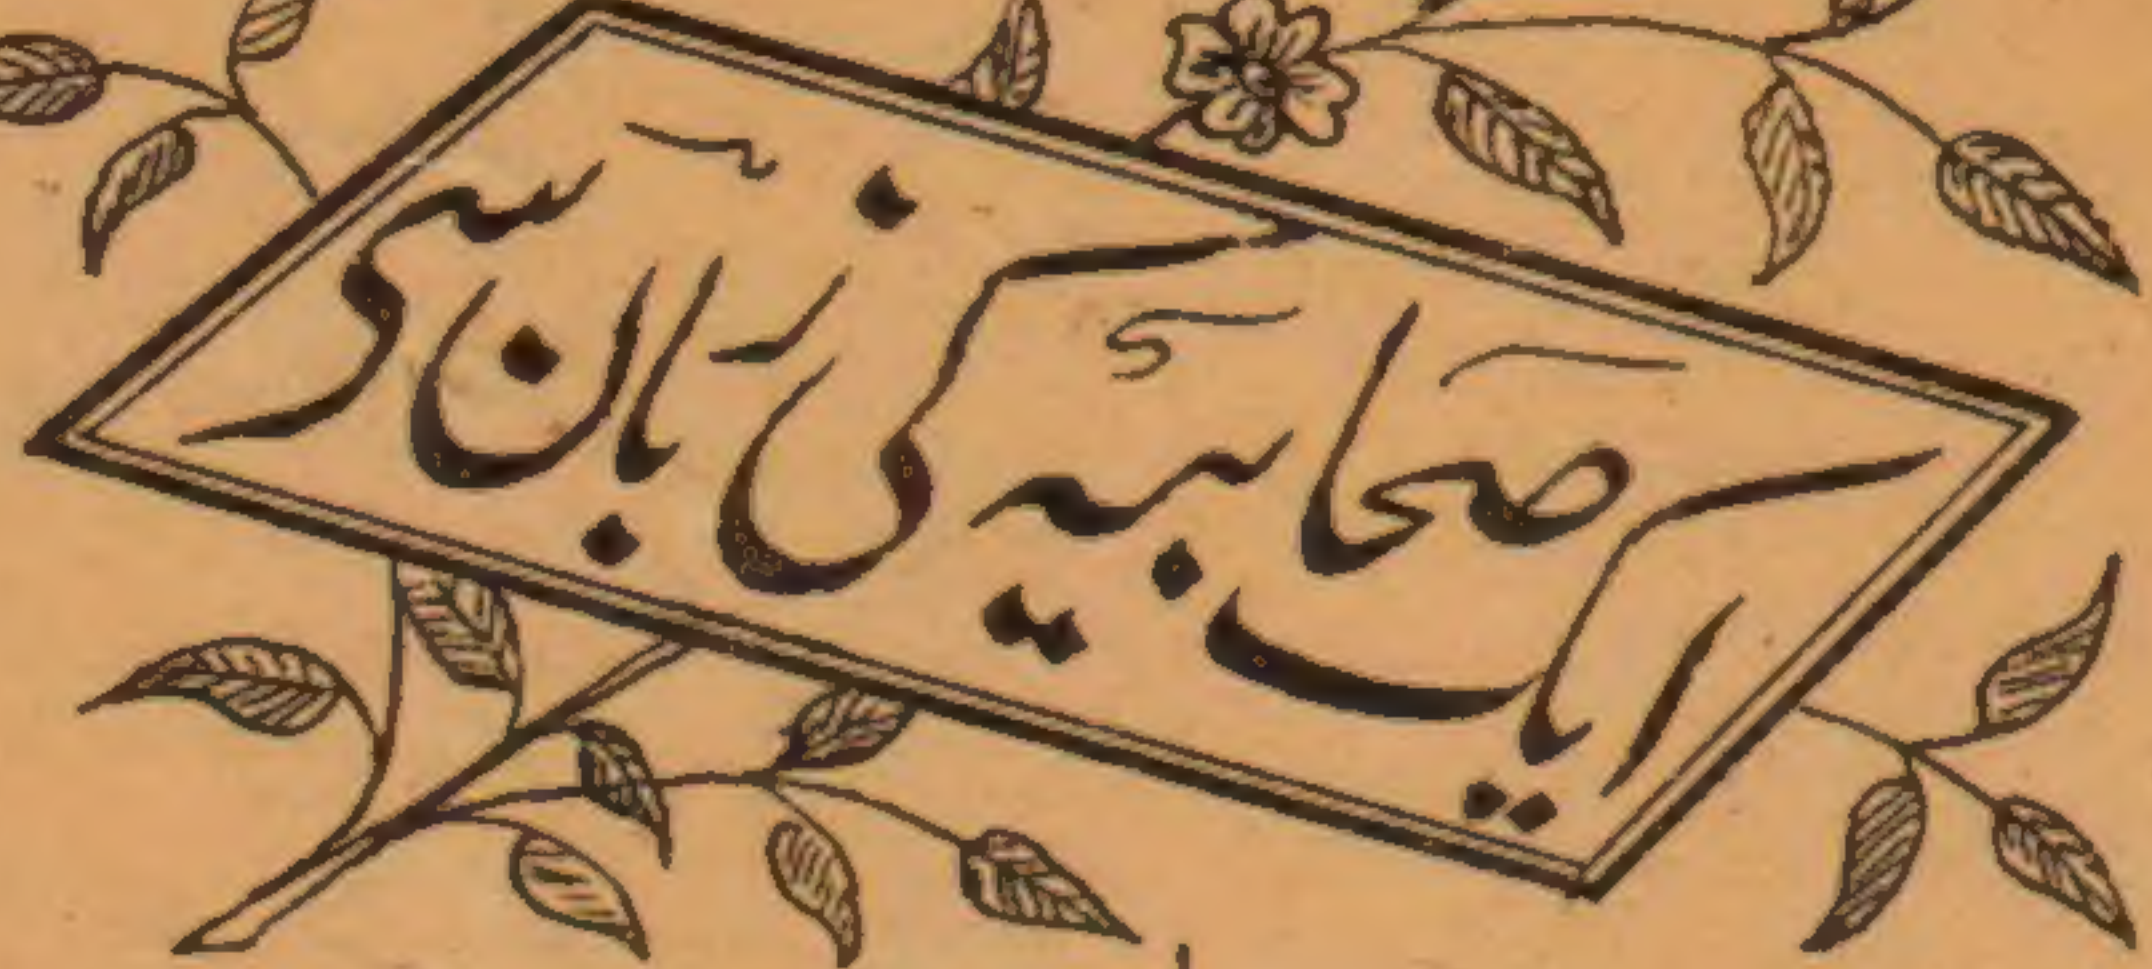 ایک صحابیہ کی زبان سے